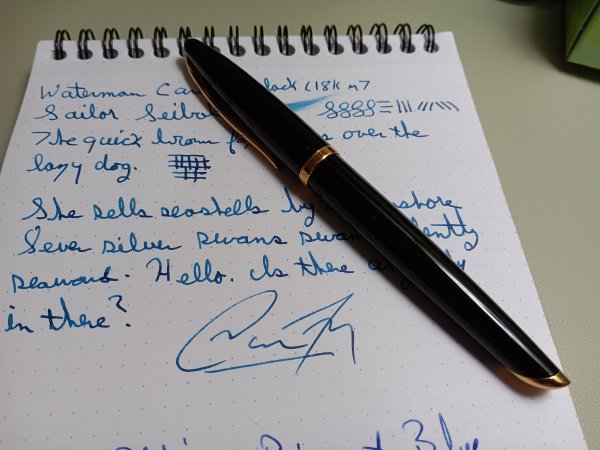 Waterman Ca lack (18K m)
Sailor Seibo
The quick brown fo s over the
lazy dog.
She sells seashells by shore
Seven silver swans swam lently
seaward. Hello. Is there an dy
in there?
Blue